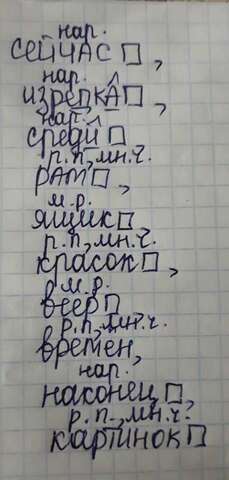 нар.
сейчас□,
нар.
изрепка□,
нар.
среди□
р.п., мн.ч.
рам□,
м.р.
ящик□,
р.п., мн.ч.
красок□,
м.р.
веер□
р.п., мн.ч.
времен,
нар.
наконец□,
р.п., мн.ч.
картинок□